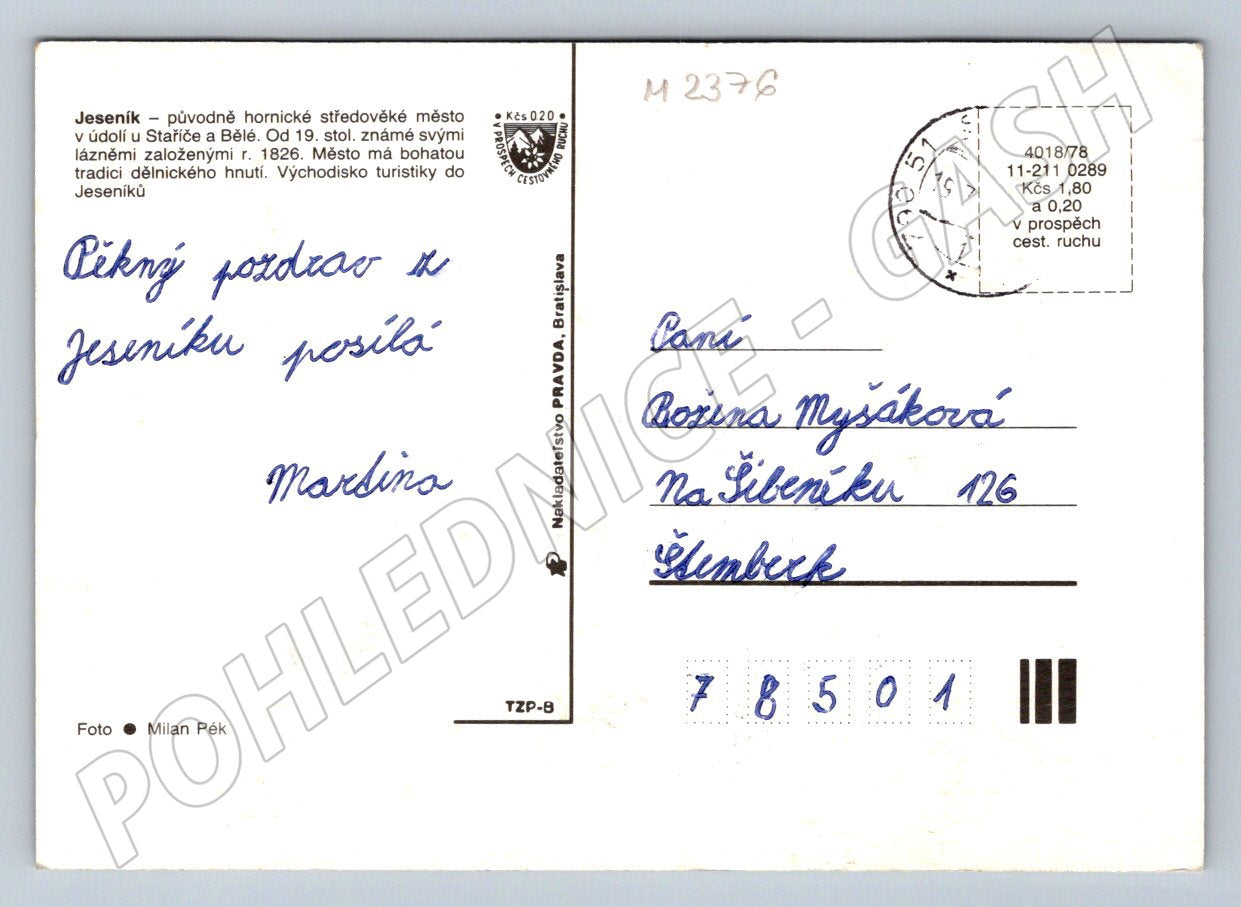 Jeseník – původně hornické středověké město
v údolí u Staříče a Bělé. Od 19. stol. známé svými
lázněmi založenými r. 1826. Město má bohatou
tradici dělnického hnutí. Východisko turistiky do
Jeseníků
• Kčs 0.20 •
V PROSPĚCH CESTOVNÉHO RUCHU
Pěkný pozdrav z
Jeseníku posílá
Martina
Foto ● Milan Pék
TZP-8
Nakladateľstvo PRAVDA, Bratislava
M 2376
790 51
4018/78
11-211 0289
Kčs 1,80
a 0,20
v prospěch
cest. ruchu
Paní
Božena Myšáková
Na Šibeníku 126
Šternberk
78501
POHLEDNICE - GASH